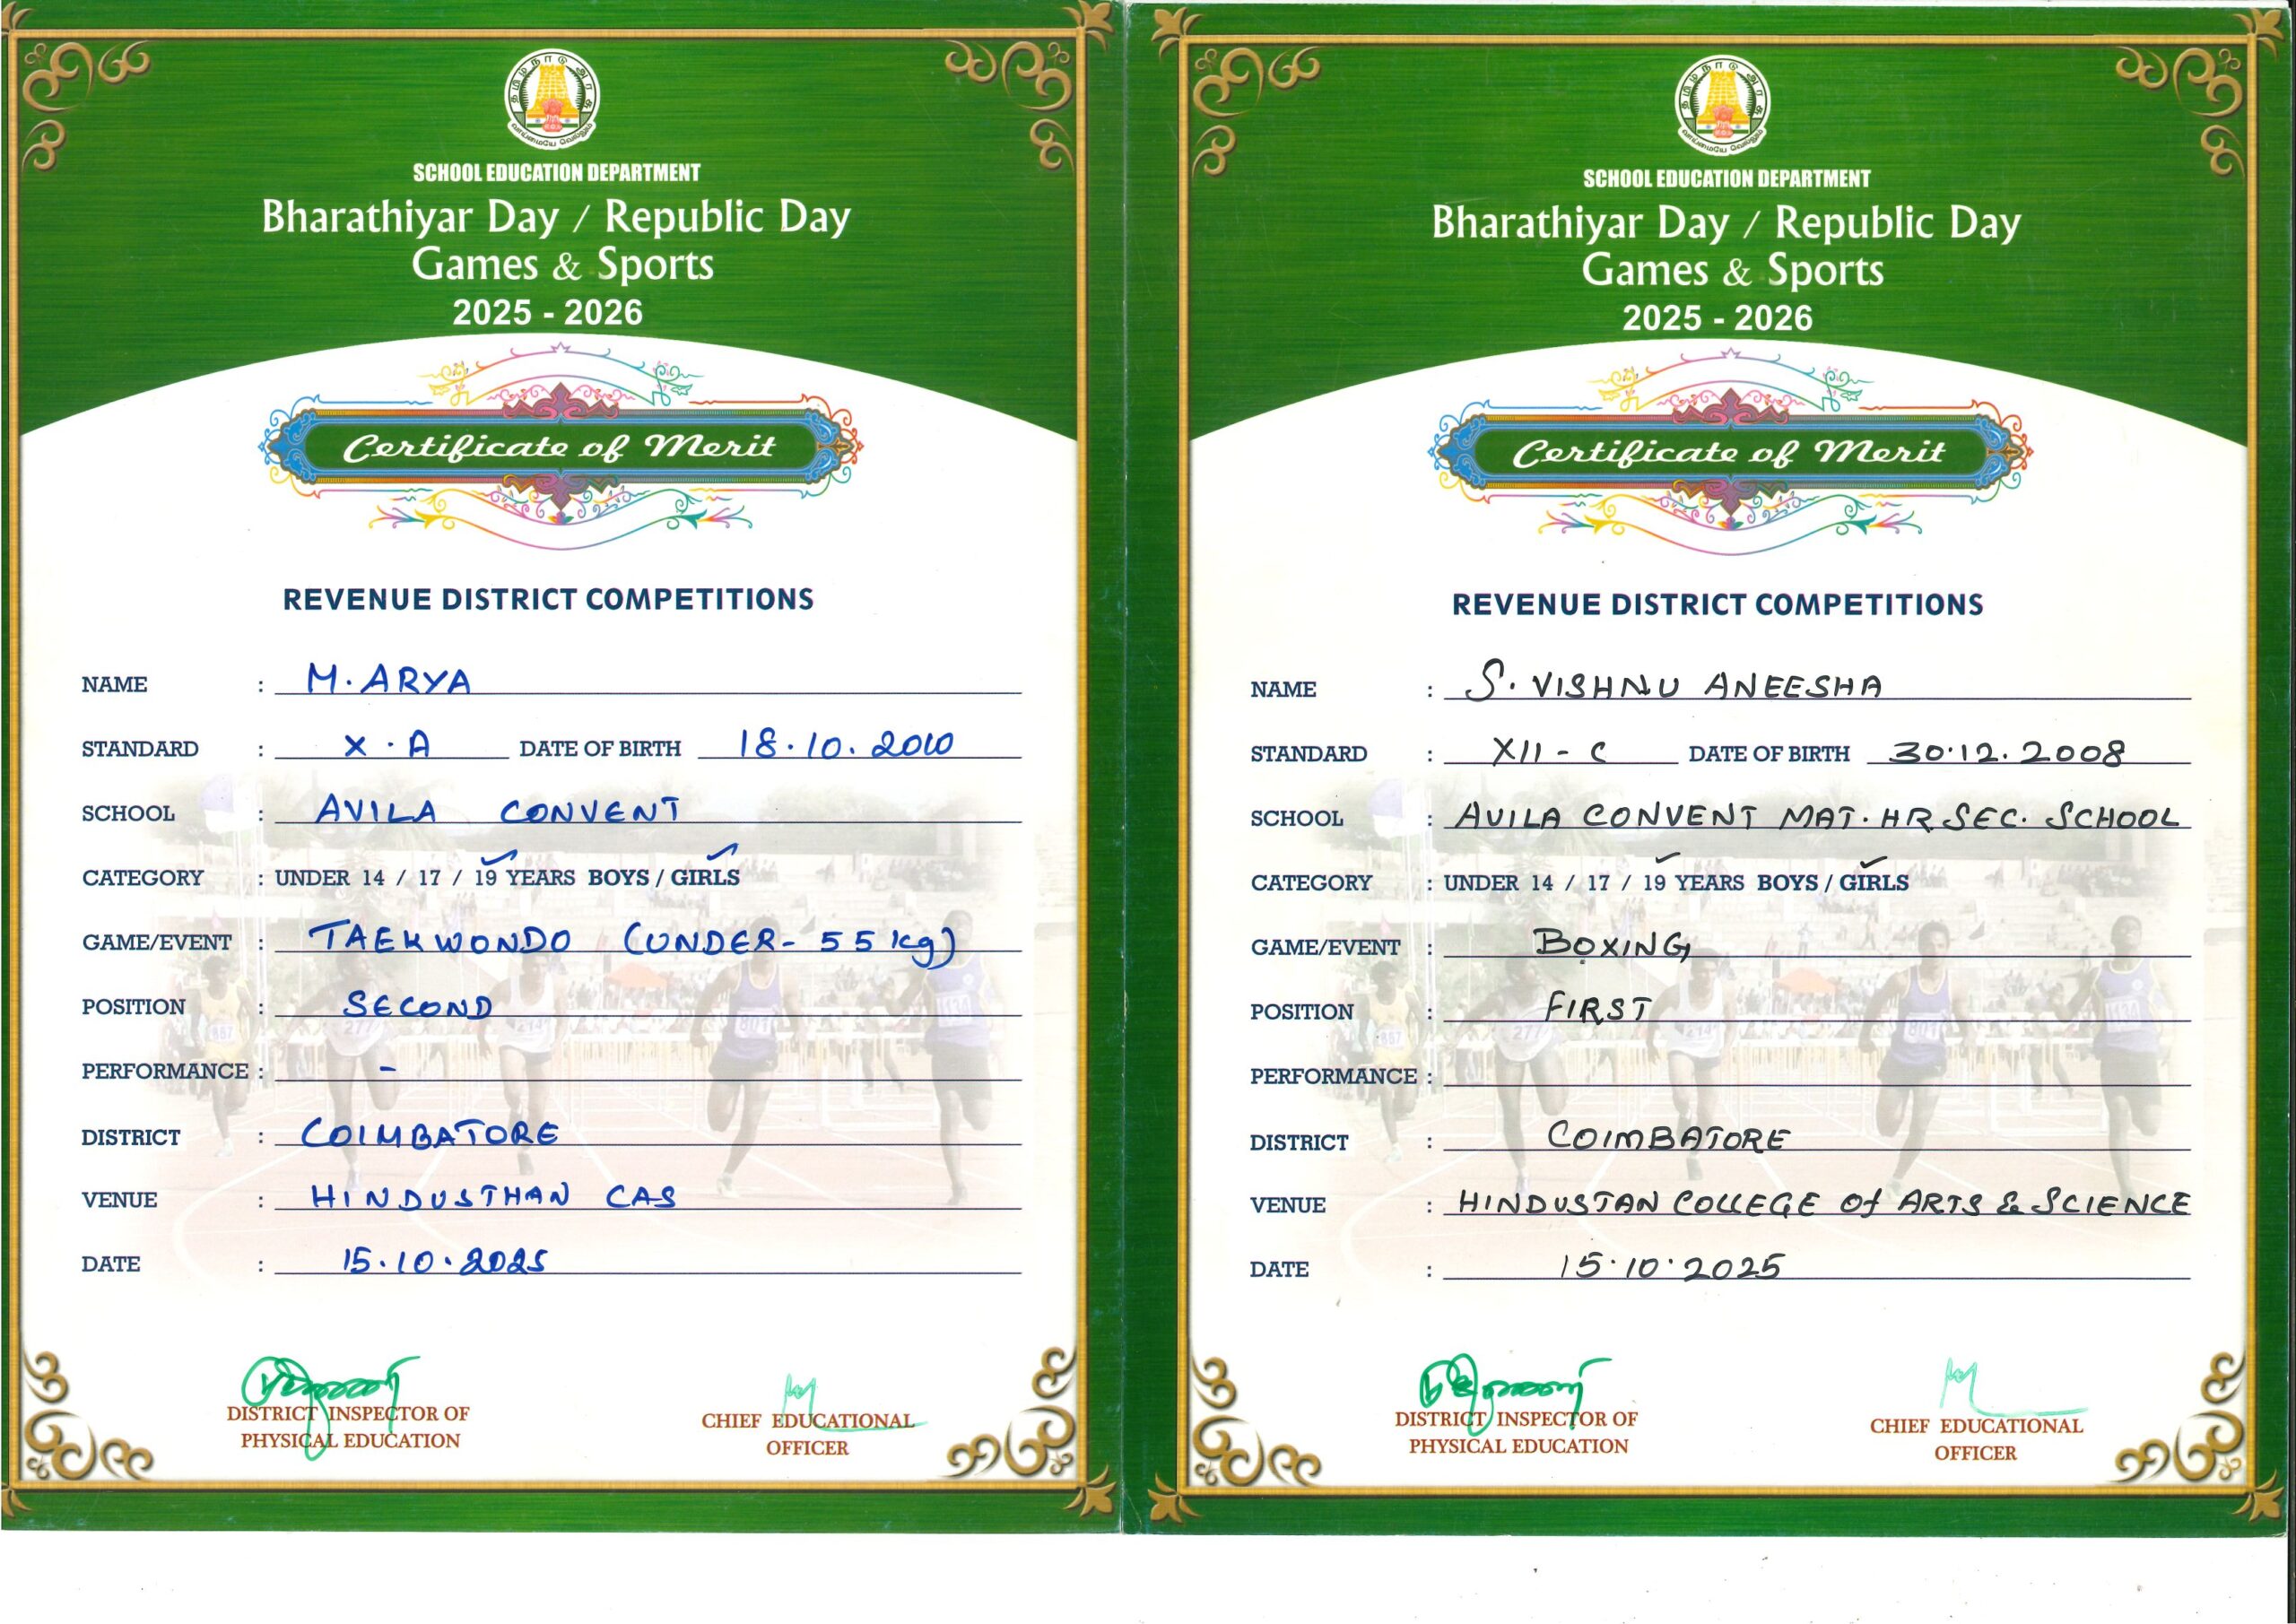 தமிழ் நாடு அரசு
வாய்மையே வெல்லும்
SCHOOL EDUCATION DEPARTMENT
Bharathiyar Day / Republic Day
Games & Sports
2025 - 2026
Certificate of Merit
REVENUE DISTRICT COMPETITIONS
NAME : M. ARYA
STANDARD : X . A DATE OF BIRTH 18.10.2010
SCHOOL : AVILA CONVENT
CATEGORY : UNDER 14 / 17 / 19 YEARS BOYS / GIRLS
GAME/EVENT : TAEKWONDO (UNDER- 55 kg)
POSITION : SECOND
PERFORMANCE : -
DISTRICT : COIMBATORE
VENUE : HINDUSTHAN CAS
DATE : 15.10.2025
DISTRICT INSPECTOR OF
PHYSICAL EDUCATION
CHIEF EDUCATIONAL
OFFICER
தமிழ் நாடு அரசு
வாய்மையே வெல்லும்
SCHOOL EDUCATION DEPARTMENT
Bharathiyar Day / Republic Day
Games & Sports
2025 - 2026
Certificate of Merit
REVENUE DISTRICT COMPETITIONS
NAME : S. VISHNU ANEESHA
STANDARD : XII - C DATE OF BIRTH 30.12.2008
SCHOOL : AVILA CONVENT MAT. HR SEC. SCHOOL
CATEGORY : UNDER 14 / 17 / 19 YEARS BOYS / GIRLS
GAME/EVENT : BOXING
POSITION : FIRST
PERFORMANCE :
DISTRICT : COIMBATORE
VENUE : HINDUSTAN COLLEGE Of ARTS & SCIENCE
DATE : 15.10.2025
DISTRICT INSPECTOR OF
PHYSICAL EDUCATION
CHIEF EDUCATIONAL
OFFICER